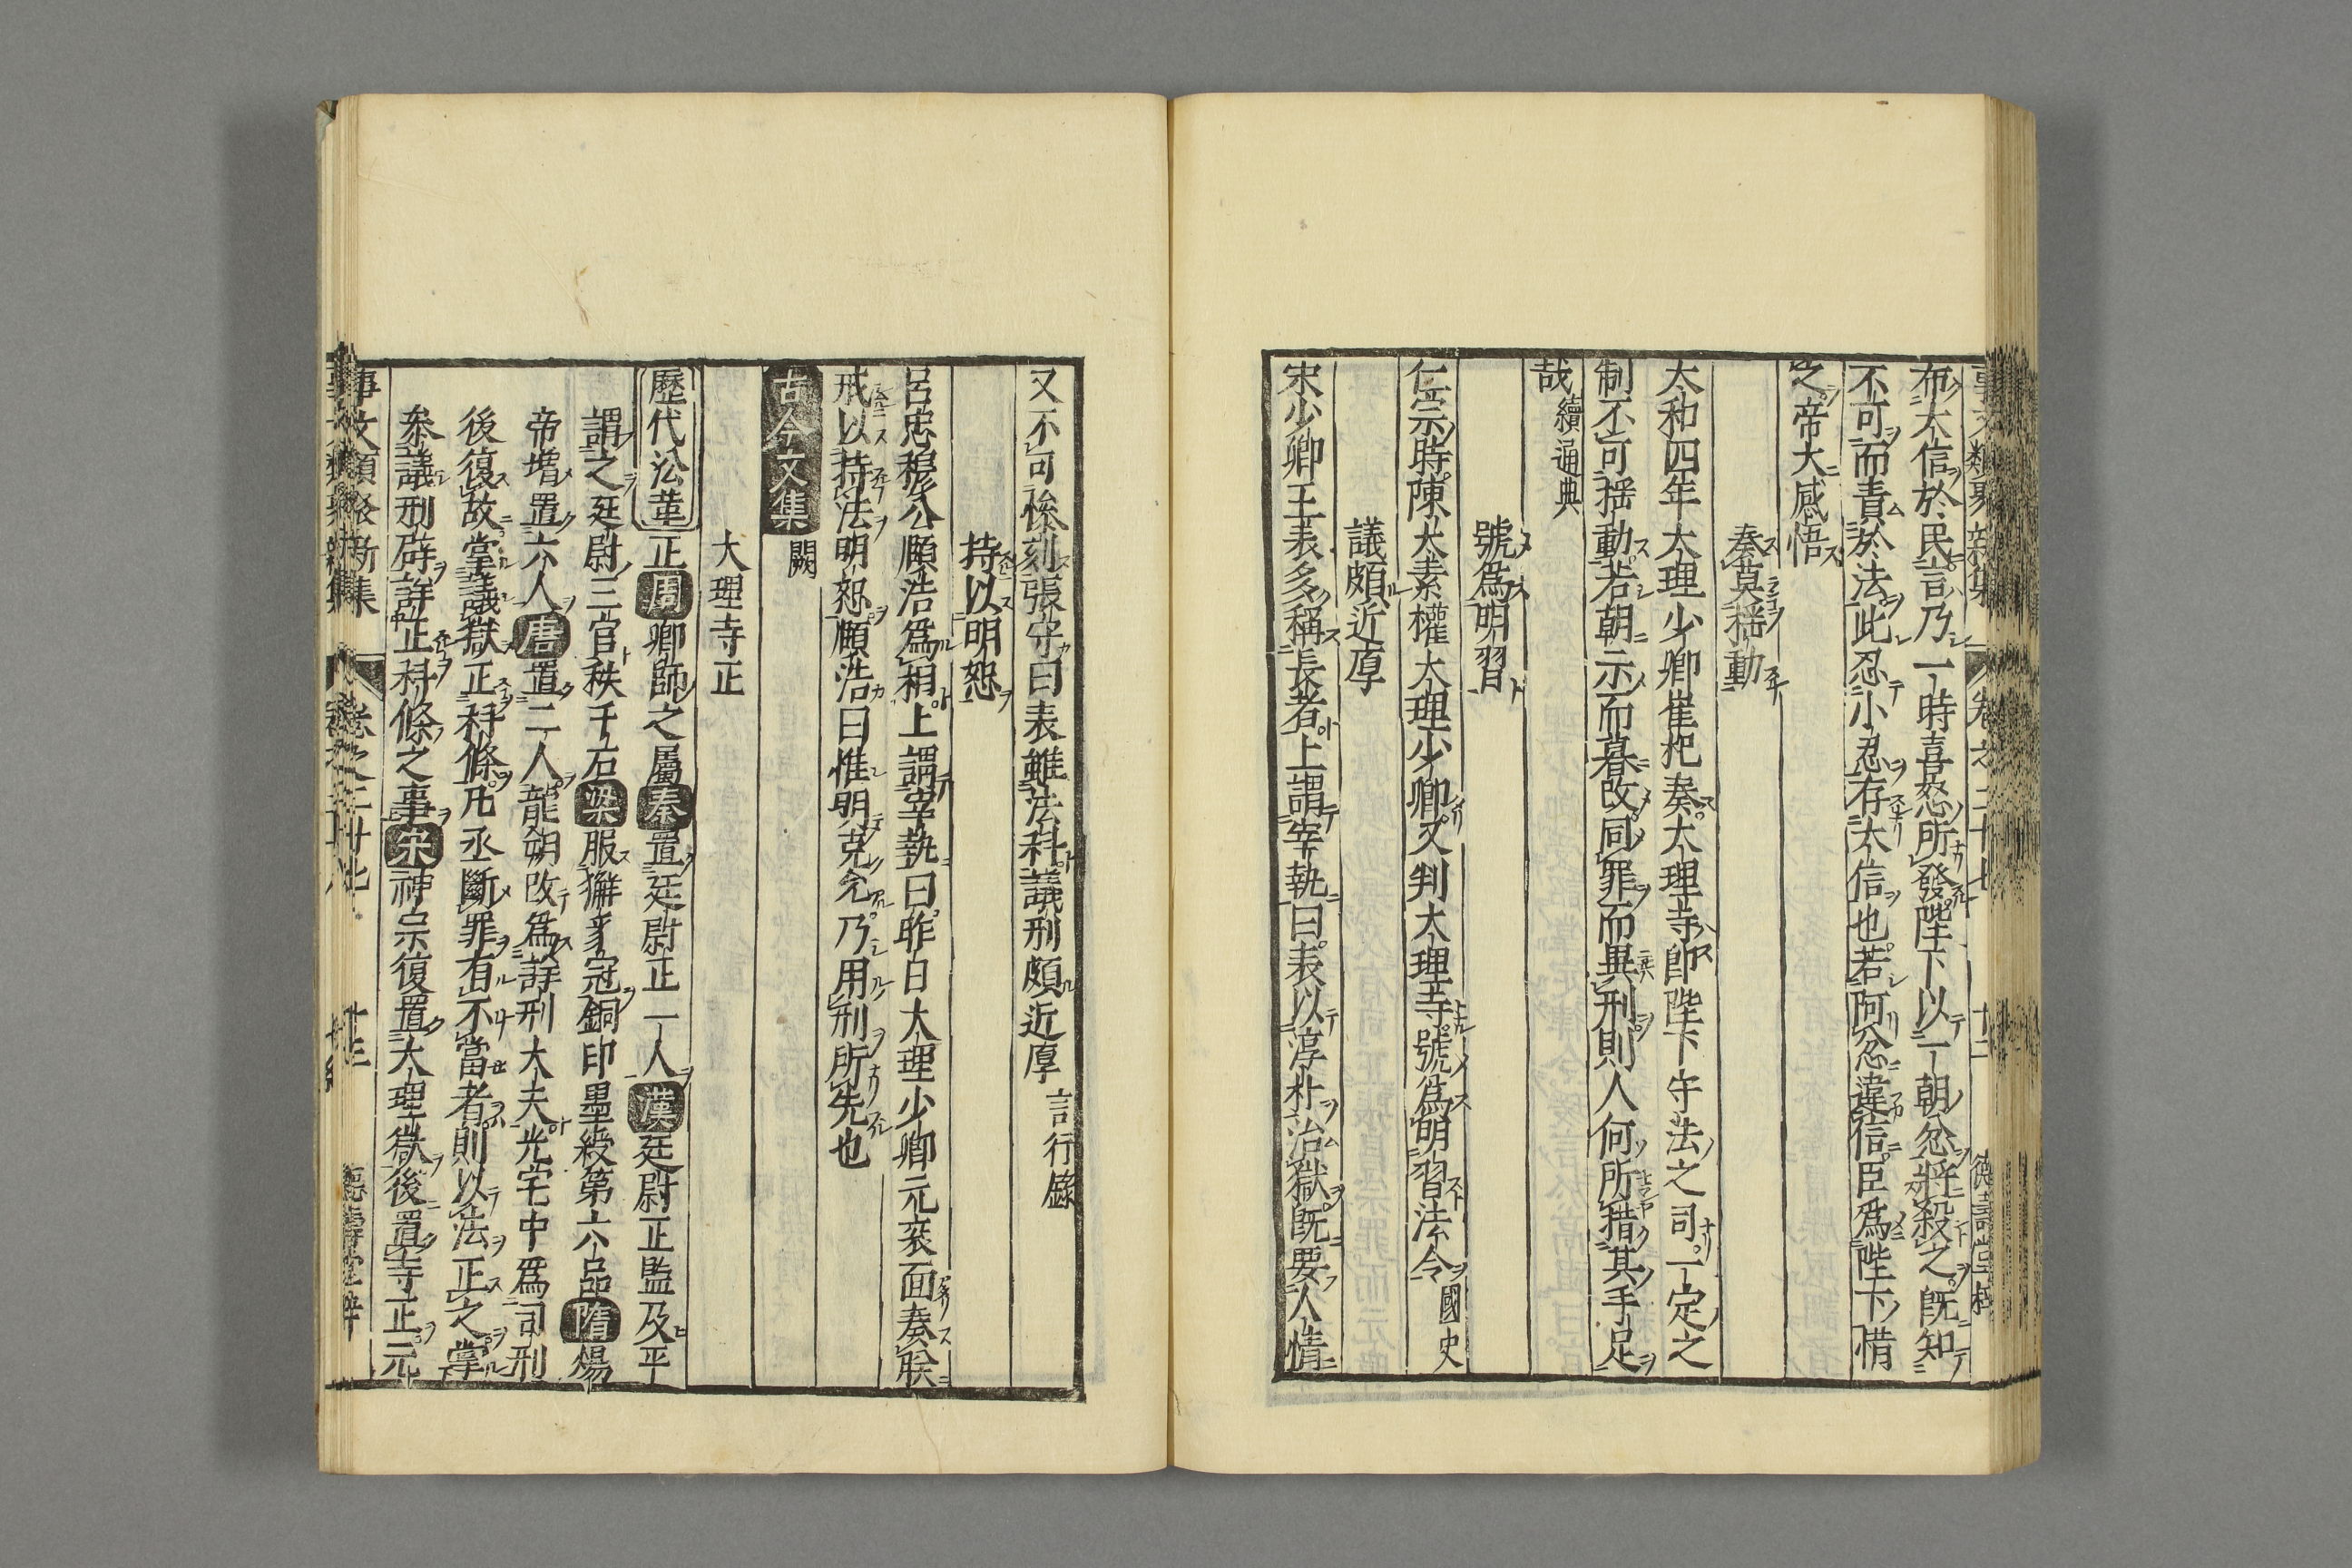 布大信於民言乃一時喜怒所發陛下以一朝忿將殺之既知
不可而責於法此忍小忍存大信也若阿忿違信臣爲陛下惜
之帝大感悟
奏莫摇動
太和四年大理少卿崔杞奏大理寺卽陛下守法之司一定之
制不可揺動若朝示而暮改同罪而異刑則人何所措其手足
哉續通典
號爲明習
仁宗時陳大素權大理少卿又判大理寺號爲明習法令國史
議頗近厚
宋少卿王表多稱長者上謂宰執曰表以淳朴治獄既要人情
又不可慘刻張守曰表雖法科議刑頗近厚言行錄
持以明恕
呂忠穆公頤浩爲相上謂宰執曰昨日大理少卿元衮面奏朕
戒以持法明恕頤浩曰惟明克允乃用刑所先也
古今文集
闕
大理寺正
歷代沿革正周卿師之屬秦置廷尉正一人漢廷尉正監及平
謂之廷尉三官秩千石梁服獬豸冠銅印墨綬第六品隋煬
帝増置六人唐置二人龍朔改爲詳刑大夫光宅中爲司刑
後復故掌議獄正科條凡丞斷罪有不當者則以法正之掌
叅議刑辟詳正科條之事宋神宗復置大理獄後置寺正元